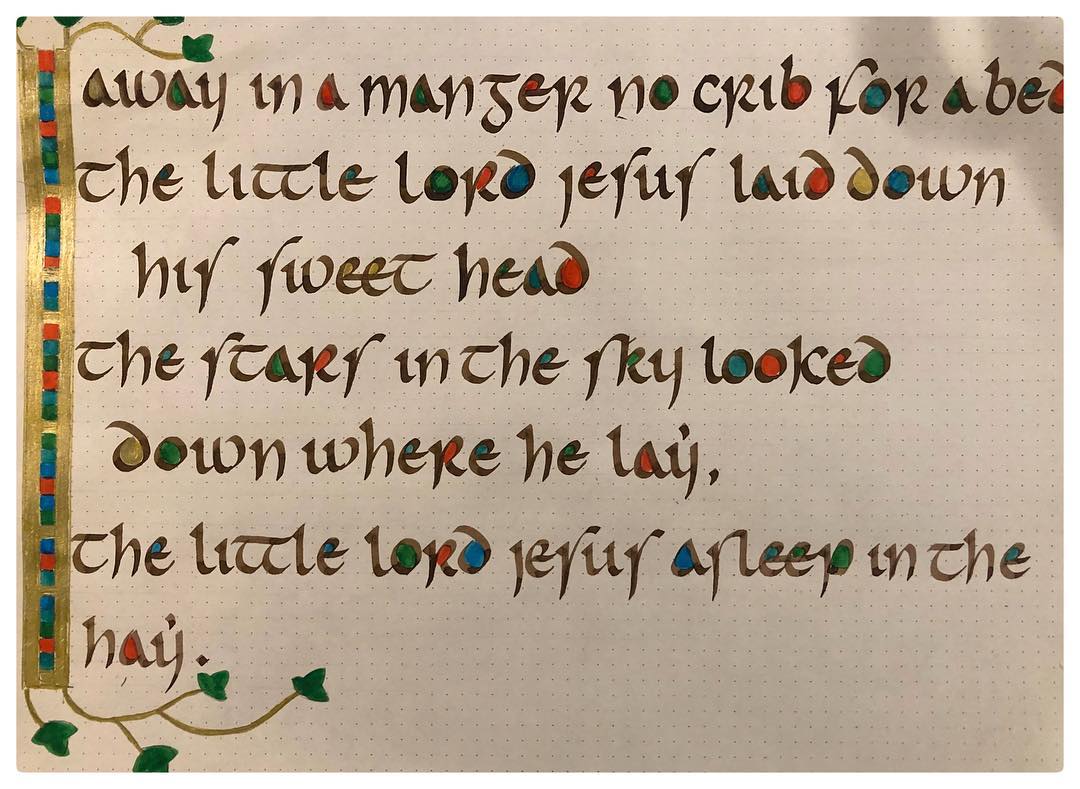 away in a manger no crib for a bed
the little lord jesus laid down
his sweet head
the stars in the sky looked
down where he lay,
the little lord jesus asleep in the
hay.